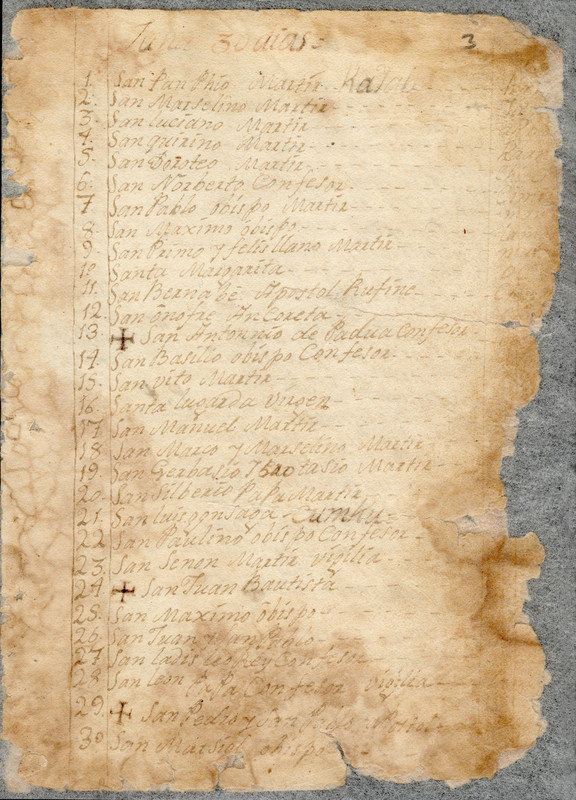 Junio 30 dias= 3
1 San Panphio Martir
2. San Marselino Martir
3. San luciano Martir
4. San quirino Martir
5. San Doroteo Martir
6. San Norberto Confesor
7 San Pablo obispo Martir
8. San Maximo obispo
9. San Primo y felisllano Martir
10 Santa Margarita
11. San Bernabe Apostol Rufine
12. San onofre Ancoreta
13. San Antonnio de Padua Confesor
14. San Basilio obispo Confesor
15. San vito Martir
16. Santa lugarda virgen
17 San Manuel Martir
18. San Marco y Marselino Martir
19. San Gerbasio Martir
20. San Silberio Papa Martir
21. San luis gonsaga Cumhu
22 San Paulino obispo Confesor
23. San Senon Martir vigilia
24 San Juan Bautista
25. San Maximo obispo
26. San Juan y San Pablo
27 San ladisleo Rey Confesor
28 San leon Papa Confesor vigilia
29. San Pedro y San Pablo
30 San Marsial obispo